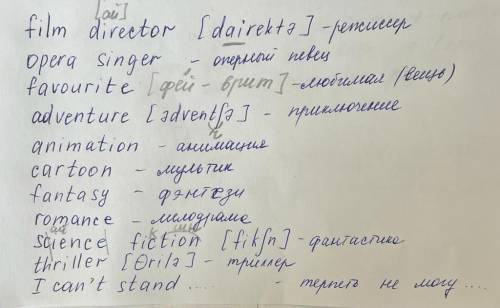 [ай]
film director [dairektə] - режиссер
opera singer - оперный певец
favourite [фей - врит] - любимая (вещь)
adventure [ədventʃə] - приключение
animation - анимация
cartoon - мультик
fantasy - фэнтези
romance - мелодрама
science fiction [fikʃn] - фантастика
thriller [θrilə] - триллер
I can't stand .... - терпеть не могу ....